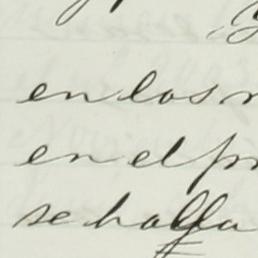 en los
en el pr
se halla